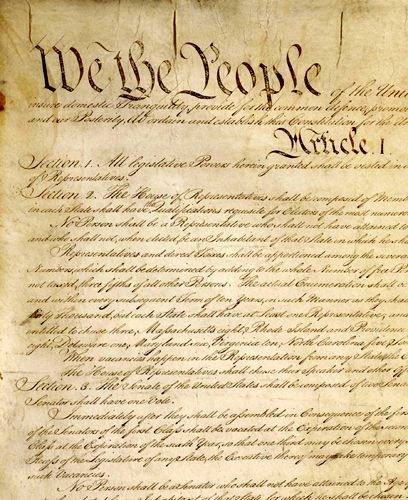 We the People of the Unit
insure domestic Tranquility, provide for the common defence, promo
and our Posterity, do ordain and establish this Constitution for the Un
Article. I.
Section. 1. All legislative Powers herein granted shall be vested in a
of Representatives.
Section. 2. The House of Representatives shall be composed of Mem
in each State shall have the Qualifications requisite for Electors of the most numero
No Person shall be a Representative who shall not have attained to
and who shall not, when elected, be an Inhabitant of that State in which he sha
Representatives and direct Taxes shall be apportioned among the severa
Numbers, which shall be determined by adding to the whole Number of free P
not taxed, three fifths of all other Persons. The actual Enumeration shall
and within every subsequent Term of ten Years, in such Manner as they sha
thirty Thousand, but each State shall have at Least one Representative; and
entitled to chuse three, Massachusetts eight, Rhode Island and Providence
eight, Delaware one, Maryland six, Virginia ten, North Carolina five, Sou
When vacancies happen in the Representation from any State, the
The House of Representatives shall chuse their Speaker and other
Section. 3. The Senate of the United States shall be composed of two Sena
Senator shall have one Vote.
Immediately after they shall be assembled in Consequence of the first
of the Senators of the first Class shall be vacated at the Expiration of the second
Class at the Expiration of the sixth Year, so that one third may be chosen every
Recess of the Legislature of any State, the Executive thereof may make tempora
such Vacancies.
No Person shall be a Senator who shall not have attained to the Age